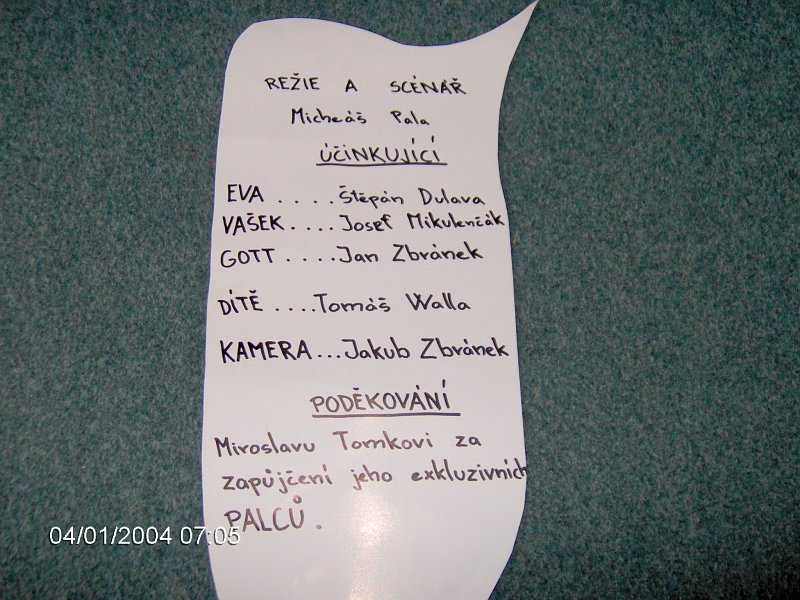 REŽIE A SCÉNÁŘ
Micheáš Pala
ÚČINKUJÍCÍ
EVA ....Štěpán Dulava
VAŠEK....Josef Mikulenčák
GOTT ....Jan Zbránek
DÍTĚ ....Tomáš Walla
KAMERA...Jakub Zbránek
PODĚKOVÁNÍ
Miroslavu Tomkovi za
zapůjčení jeho exkluzivních
PALCŮ.
04/01/2004 07:05